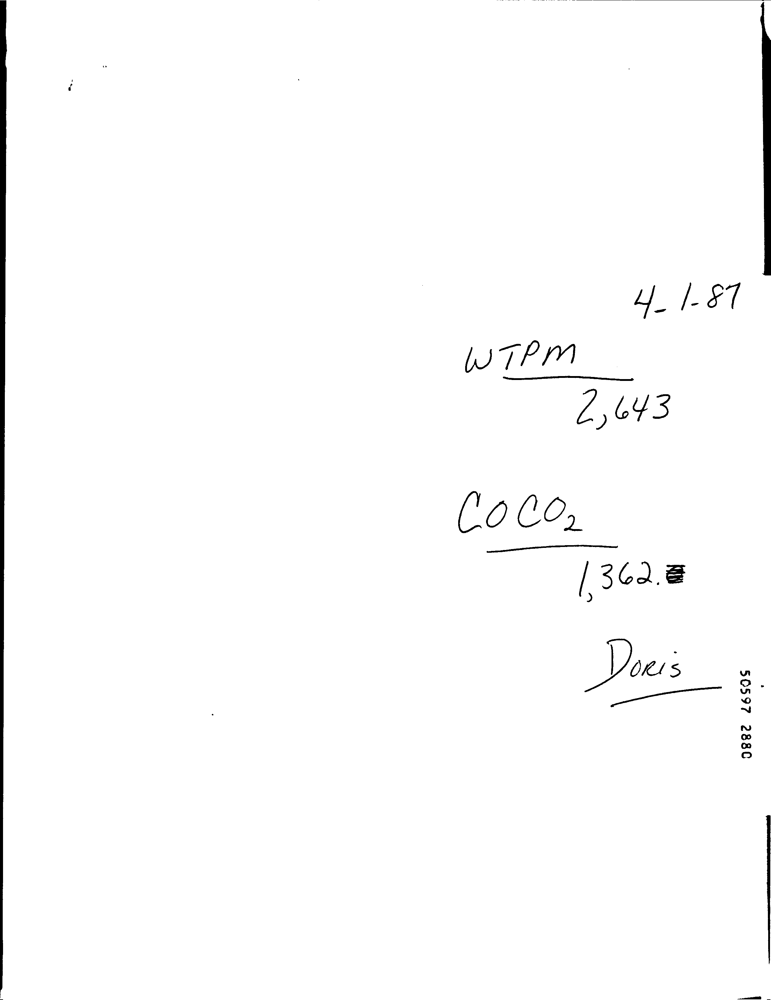 4-1-87
WTPM
2,643
COCO₂
1,362.
Doris
50597 2880